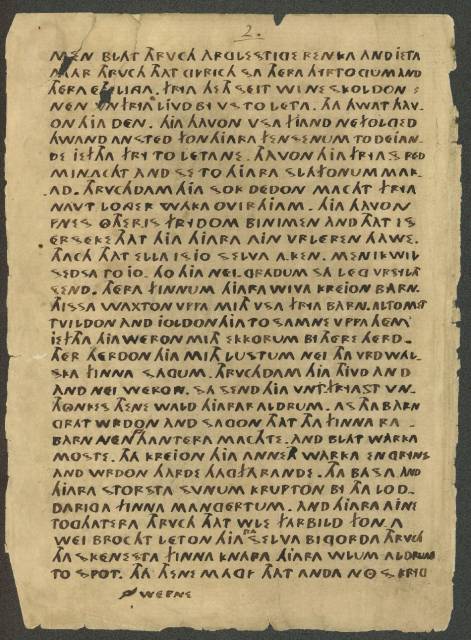 2.
MEN BLAT THRVCH ARGLESTIGE RENKA AND IETA
MAR THRVCH THAT GIVRICH SA THERA HYRTOGUM AND
THERA ETHLIGA. FRIA HETH SEIT WI NE SKOLDON
NEN VN FRIA LIVD BI VS TO LETA. THA HWAT HAV-
ON HIA DEN. HIA HAVON VSA FIAND NEI FOLGED
HWAND AN STED FON HIARA FENSENUM TO DEIAN-
DE IEFTHA FRY TO LETANE. HAVON HIA FRYAS RED
MINACHT AND SE TO HIARA SLAFONUM MAK-
AD. THRVCHDAM HIA SOK DEDON MACHT FRIA
NAVT LONGER WAKA OVIR HIAM. HIA HAVON
ENES OTHERIS FRIDOM BINIMEN AND THAT IS
ERSEKE THAT HIA HIARA AIN VRLEREN HAWE.
THACH THAT ELLA IS IO SELVA AKEN. MEN IK WIL
SEDSA TO IO. HO HIA NEI GRADUM SA LEG VRSYLTH
SEND. THERA FINNUM HIARA WIVA KREION BARN.
THISSA WAXTON VPPA MITH VSA FRIA BARN. ALTOMET
TVILDON AND IOLDON HIA TO SAMNE VPPA HEM
IEFTHA HIA WERON MITH EKKORUM BI THERE HERD.
THER HERDON HIA MITH LUSTUM NEI THA VRDWAL-
SKA FINNA SAGUM. THRVCHDAM HIA THIVD AND
AND NEI WERON. SA SEND HIA VNTFRIAST VN-
THONKES THENE WALD HIARAR ALDRUM. AS THA BARN
GRAT WRDON AND SAGON THAT THA FINNA RA
BARN NEN HANTERA MACHTE. AND BLAT WARKA
MOSTE. THA KREION HIA ANNER WARKA EN GRINS
AND WRDON HARDE HACHFARANDE. THA BASA AND
HIARA STORSTA SVNUM KRUPTON BY THA LOD-
DARIGA FINNA MANGERTUM. AND HIARA AINE
TOGHATERA THRVCH THAT WLE FARBILD FON A
WEI BROCHT LETON HIA RA SELVA BIGORDA THRVCH
THA SKENESTA FINNA KNAPA HIARA WLUM ALDRUM
TO SPOT. THA THENE MAGI THAT ANDA NOS KRIG
WERNE